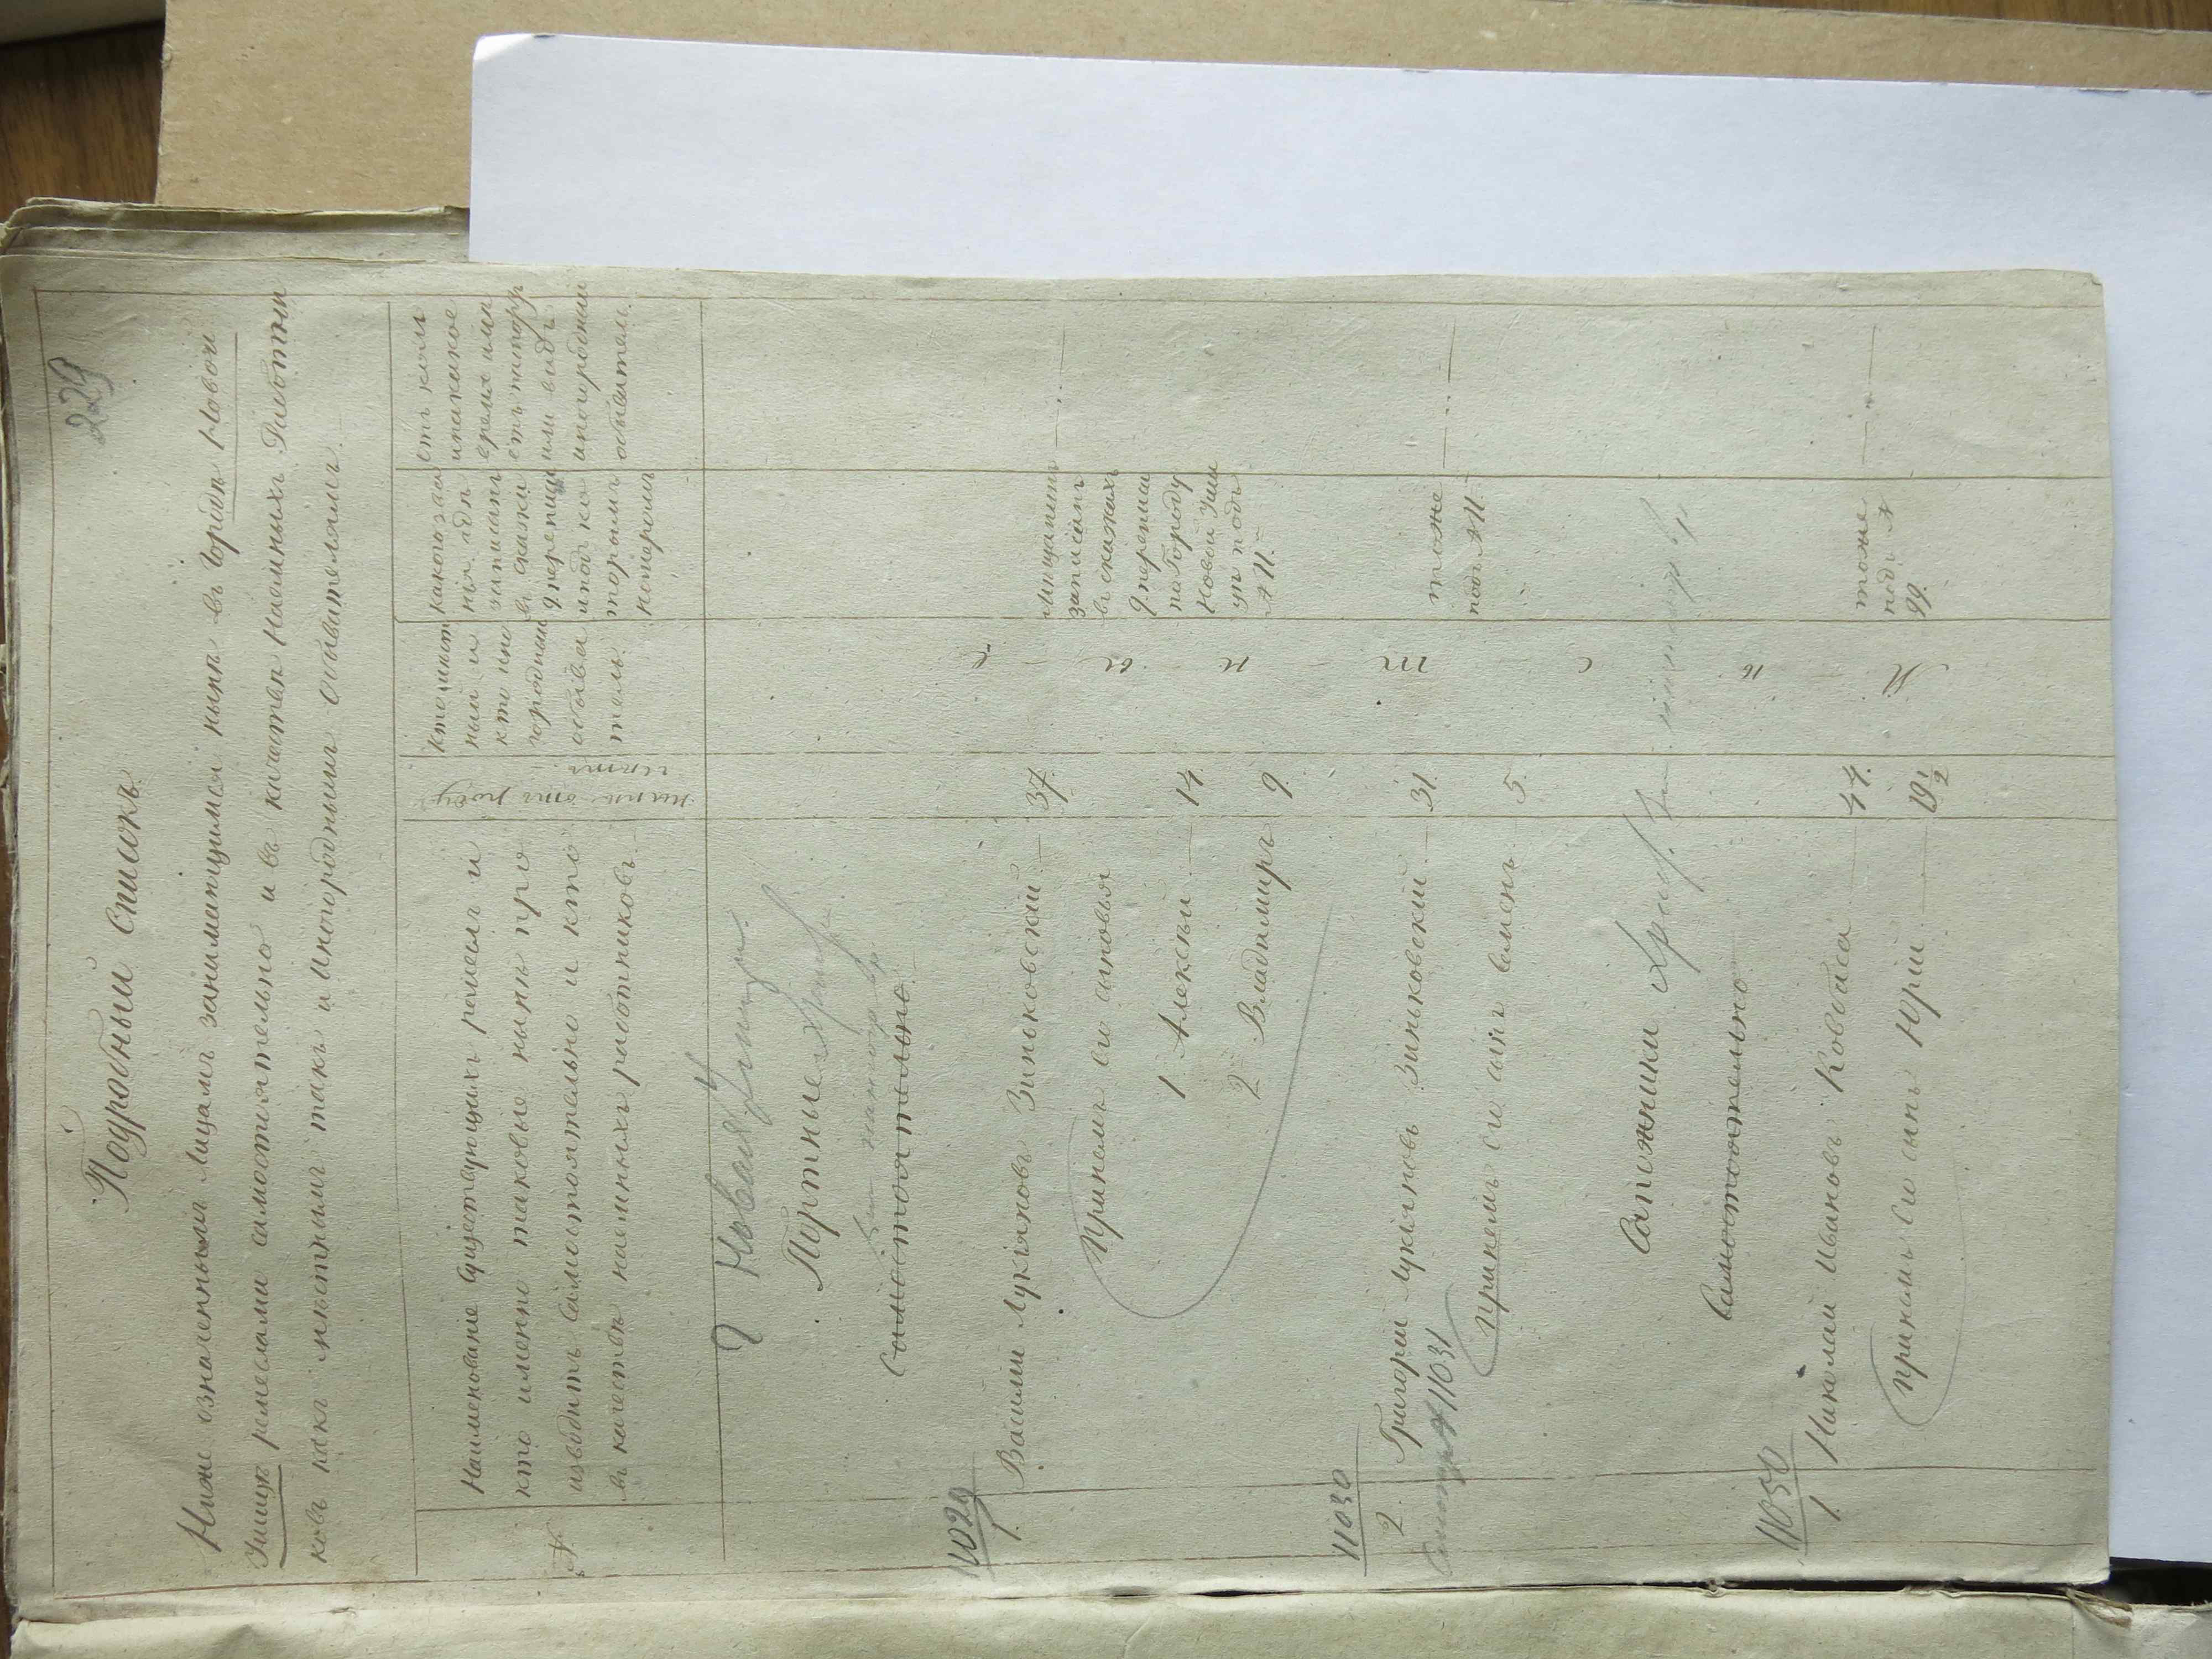 229
Подробный Списокъ
Ниже означеннымъ лицамъ занимающимся нынѣ въ Городѣ Новой
Ушицѣ ремеслами самостоятельно и въ качествѣ наемныхъ Работни
ковъ какъ мѣстнымъ такъ и Иногороднымъ Обывателямъ.
№
Наименованіе существующихъ ремеслъ и
кто именно таковые нынѣ про
изводитъ самостоятельно и кто
въ качествѣ наемныхъ работниковъ
лѣта
Кто мѣст
ный и
кто ино
городный
обыва
тель
Какого зва
нія, гдѣ
записанъ
въ сказки
9 переписи
и подъ ко
торымъ
номеромъ
Отъ кого
и на какое
время имѣ
етъ паспортъ
или видъ
иногородный
обыватель
Новая Ушица
Портные
Самостоятельно
11029
1. Василій Лукіяновъ Зинковскій 37
Мѣщанинъ
записанъ
въ сказкахъ
9 переписи
по Городу
Новой Уши
цѣ подъ
№ 11.
При немъ его сыновья
1 Алексѣй 14
2 Владимиръ 9.
11030
2. Григорій Лукіяновъ Зинковскій 31. тоже
подъ № 11.
11031
При немъ его сынъ Семенъ 5.
Сапожники
Самостоятельно
11030
1. Николай Ивановъ Ковбаса 44. тоже
подъ №
99.
При немъ его сынъ Юрій 19 1/2
М ѣ с т н ы е